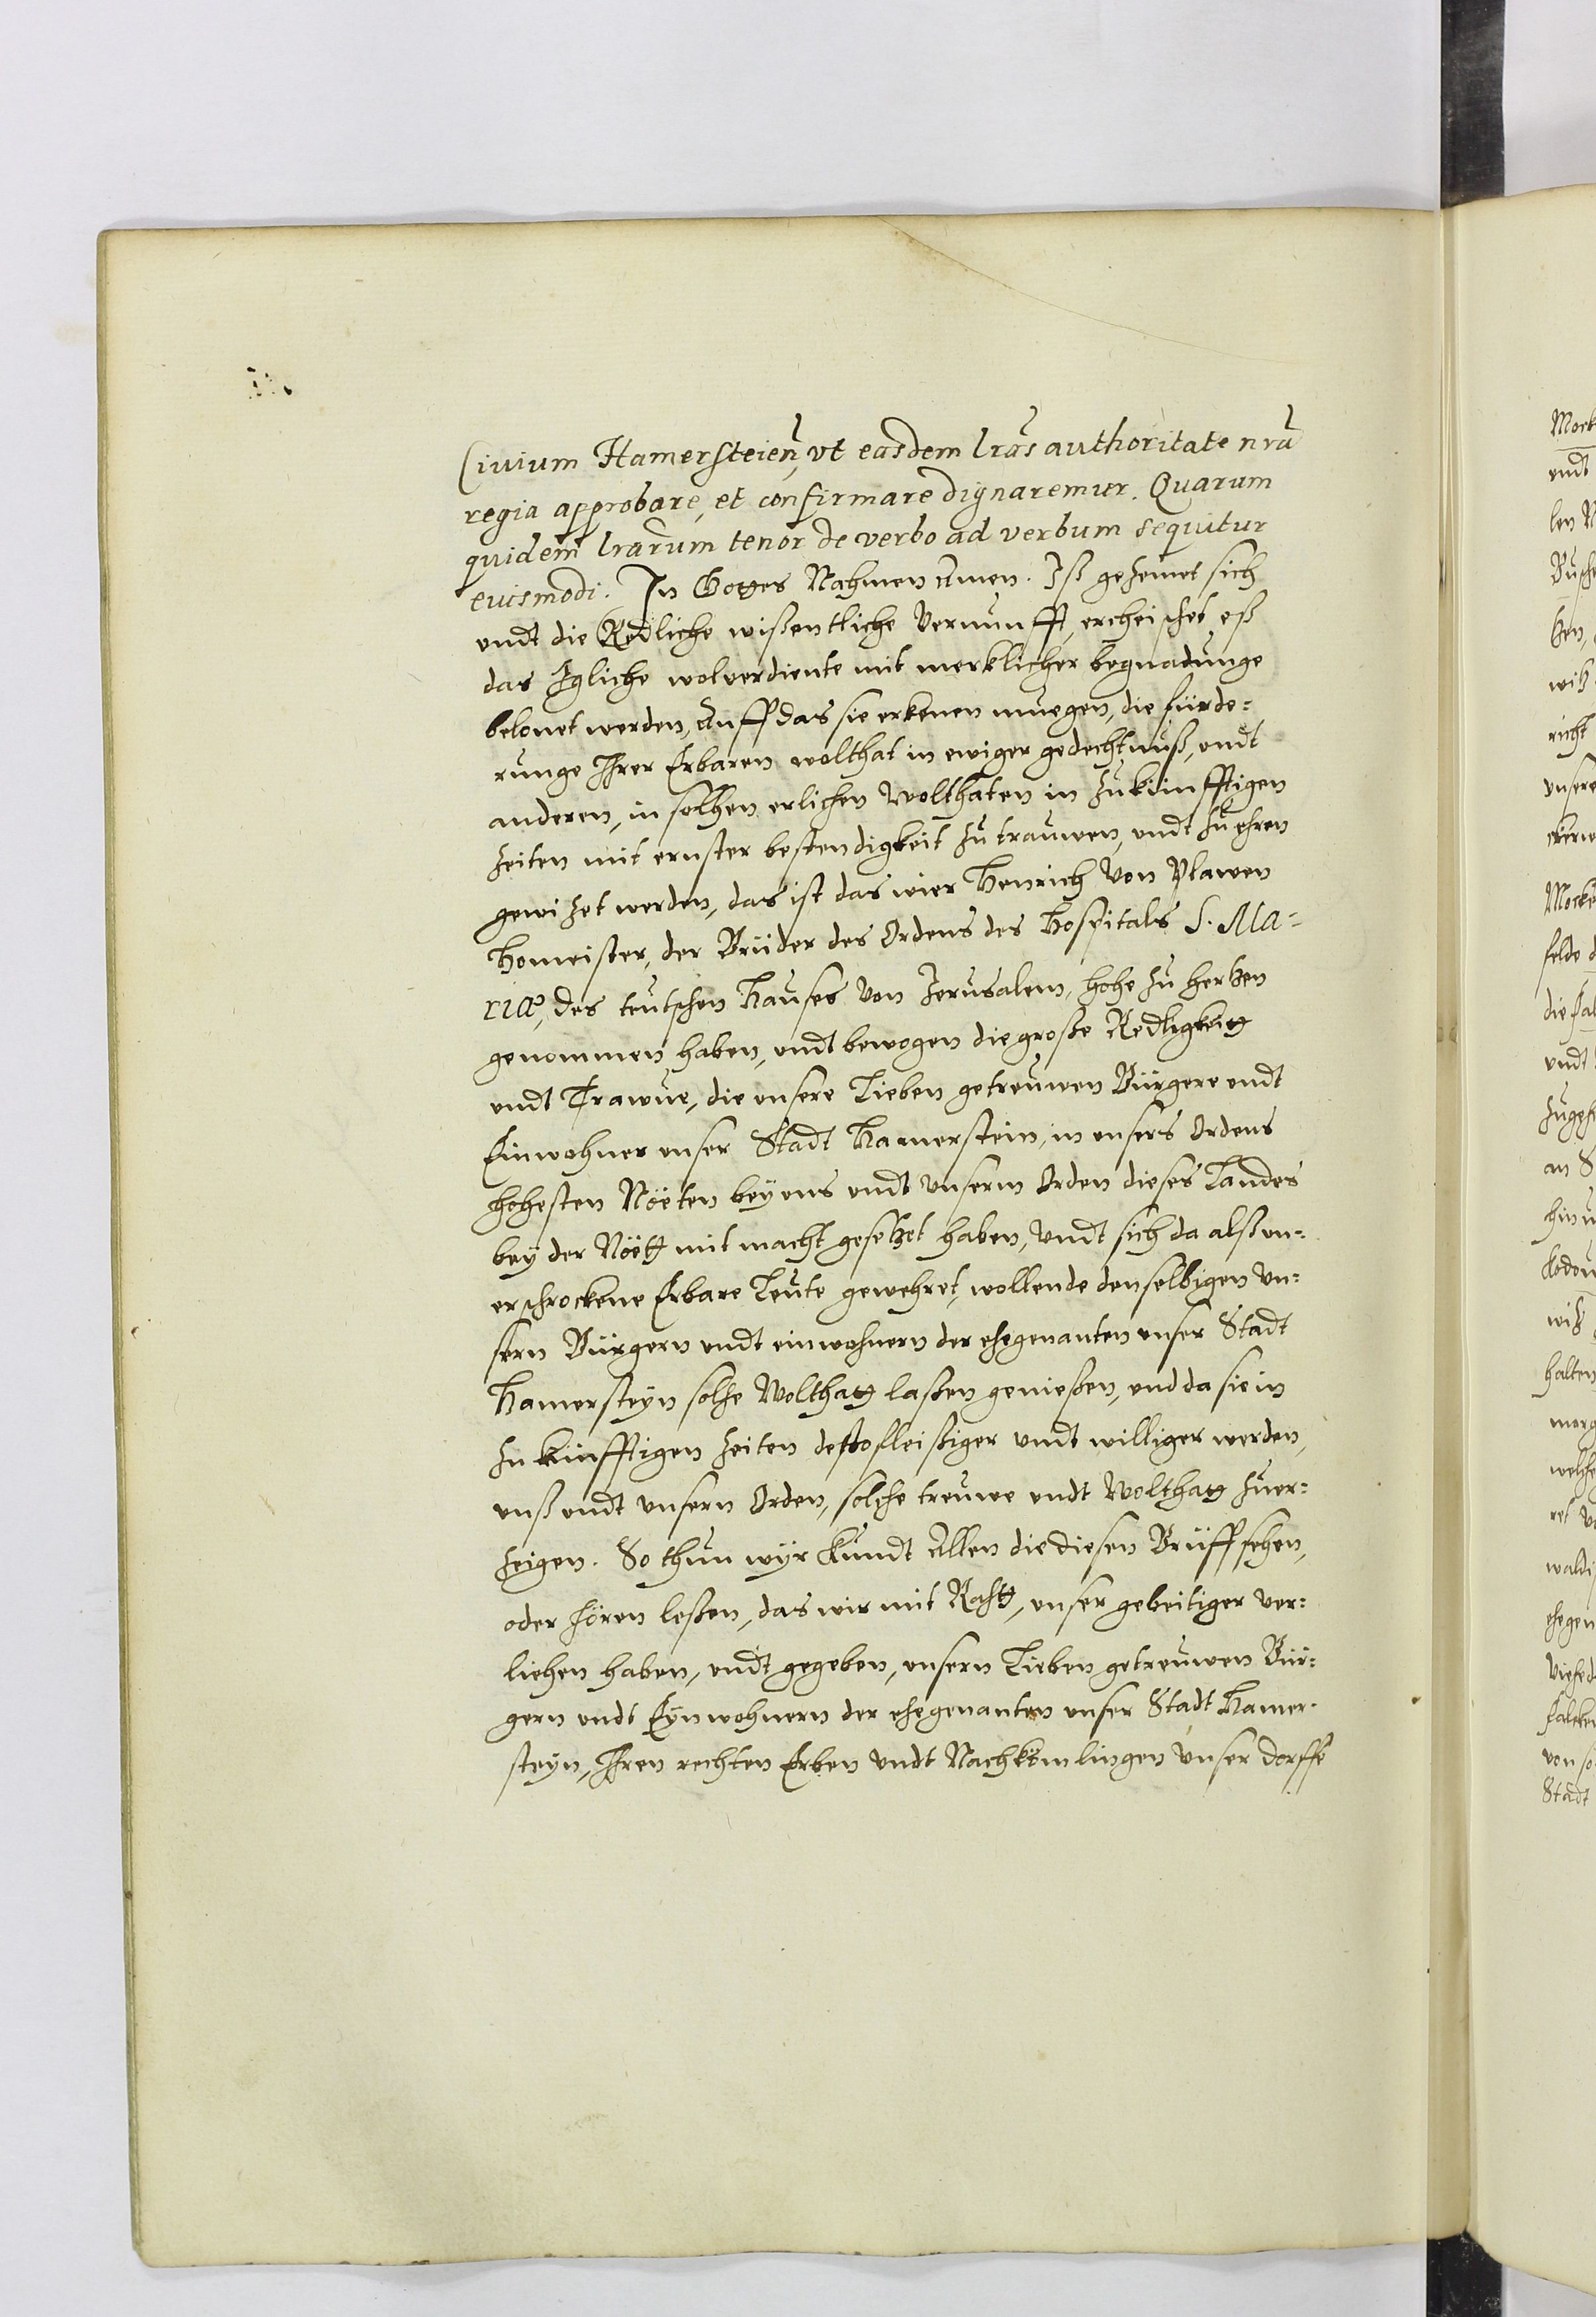 Civium Hamersteien̄, vt easdem lrãs authoritate nrã
regia approbare, et confirmare dignaremur. Quarum
quidem lrãrum tenor de verbo ad verbum sequitur
euismodi. In Gottes Nahmen Amen. Iß gezemet sich
undt die Redliche wißentliche Vernunfft, ercheischet eß
das Igliche wolverdiente mit merklicher begnadunge
belonet werden, Auff das sie erkenen muegen, die fürde=
runge Ihrer Erbaren wolthat in ewiger gedechtnuß, undt
anderen, in solchen erlichen Wolthaten in zukünfftigen
Zeiten mit ernster bestendigkeit zu trauwen, undt zu ehren
gewizet werden, das ist das wier Henrich von Plawen
Homeister, der Brüder des Ordens des Hospitals S. Ma=
riæ, des teutschen Hauses von Jerusalem, hohe zu hertzen
genommen haben, undt bewogen die große Redligkeitt
undt Trawue, die unsere Lieben getreuwen Bürgere undt
Einwohner unser Stadt Hamerstein, in unsers Ordens
hohesten Nöeten bey uns undt unserm Orden dieses Landes
bey der Nöett mit macht gesetzet haben, undt sich da alß un=
erschrockene Erbare Leute gewehret, wollende denselbigen un=
sern Bürgern undt einwohnern der ehegenanten unser Stadt
Hamersteyn solche Wolthatt laßen genießen, und da sie in
zu künfftigen Zeiten desto fleißiger undt williger werden,
unß undt unsern Orden, solche treuwe undt Wolthatt zuer=
zeigen. So thun wyr kundt Allen die diesen Brüff sehen,
oder hören leßen, das wir mit Rahtt, unser gebeitiger ver=
liehen haben, undt gegeben, unsern Lieben getreuwen Bür=
gern undt Eynwohnern der ehegenanten unser Stadt Hamer=
steyn, Ihren rechten Erben undt Nachkömlingen unser dorffe